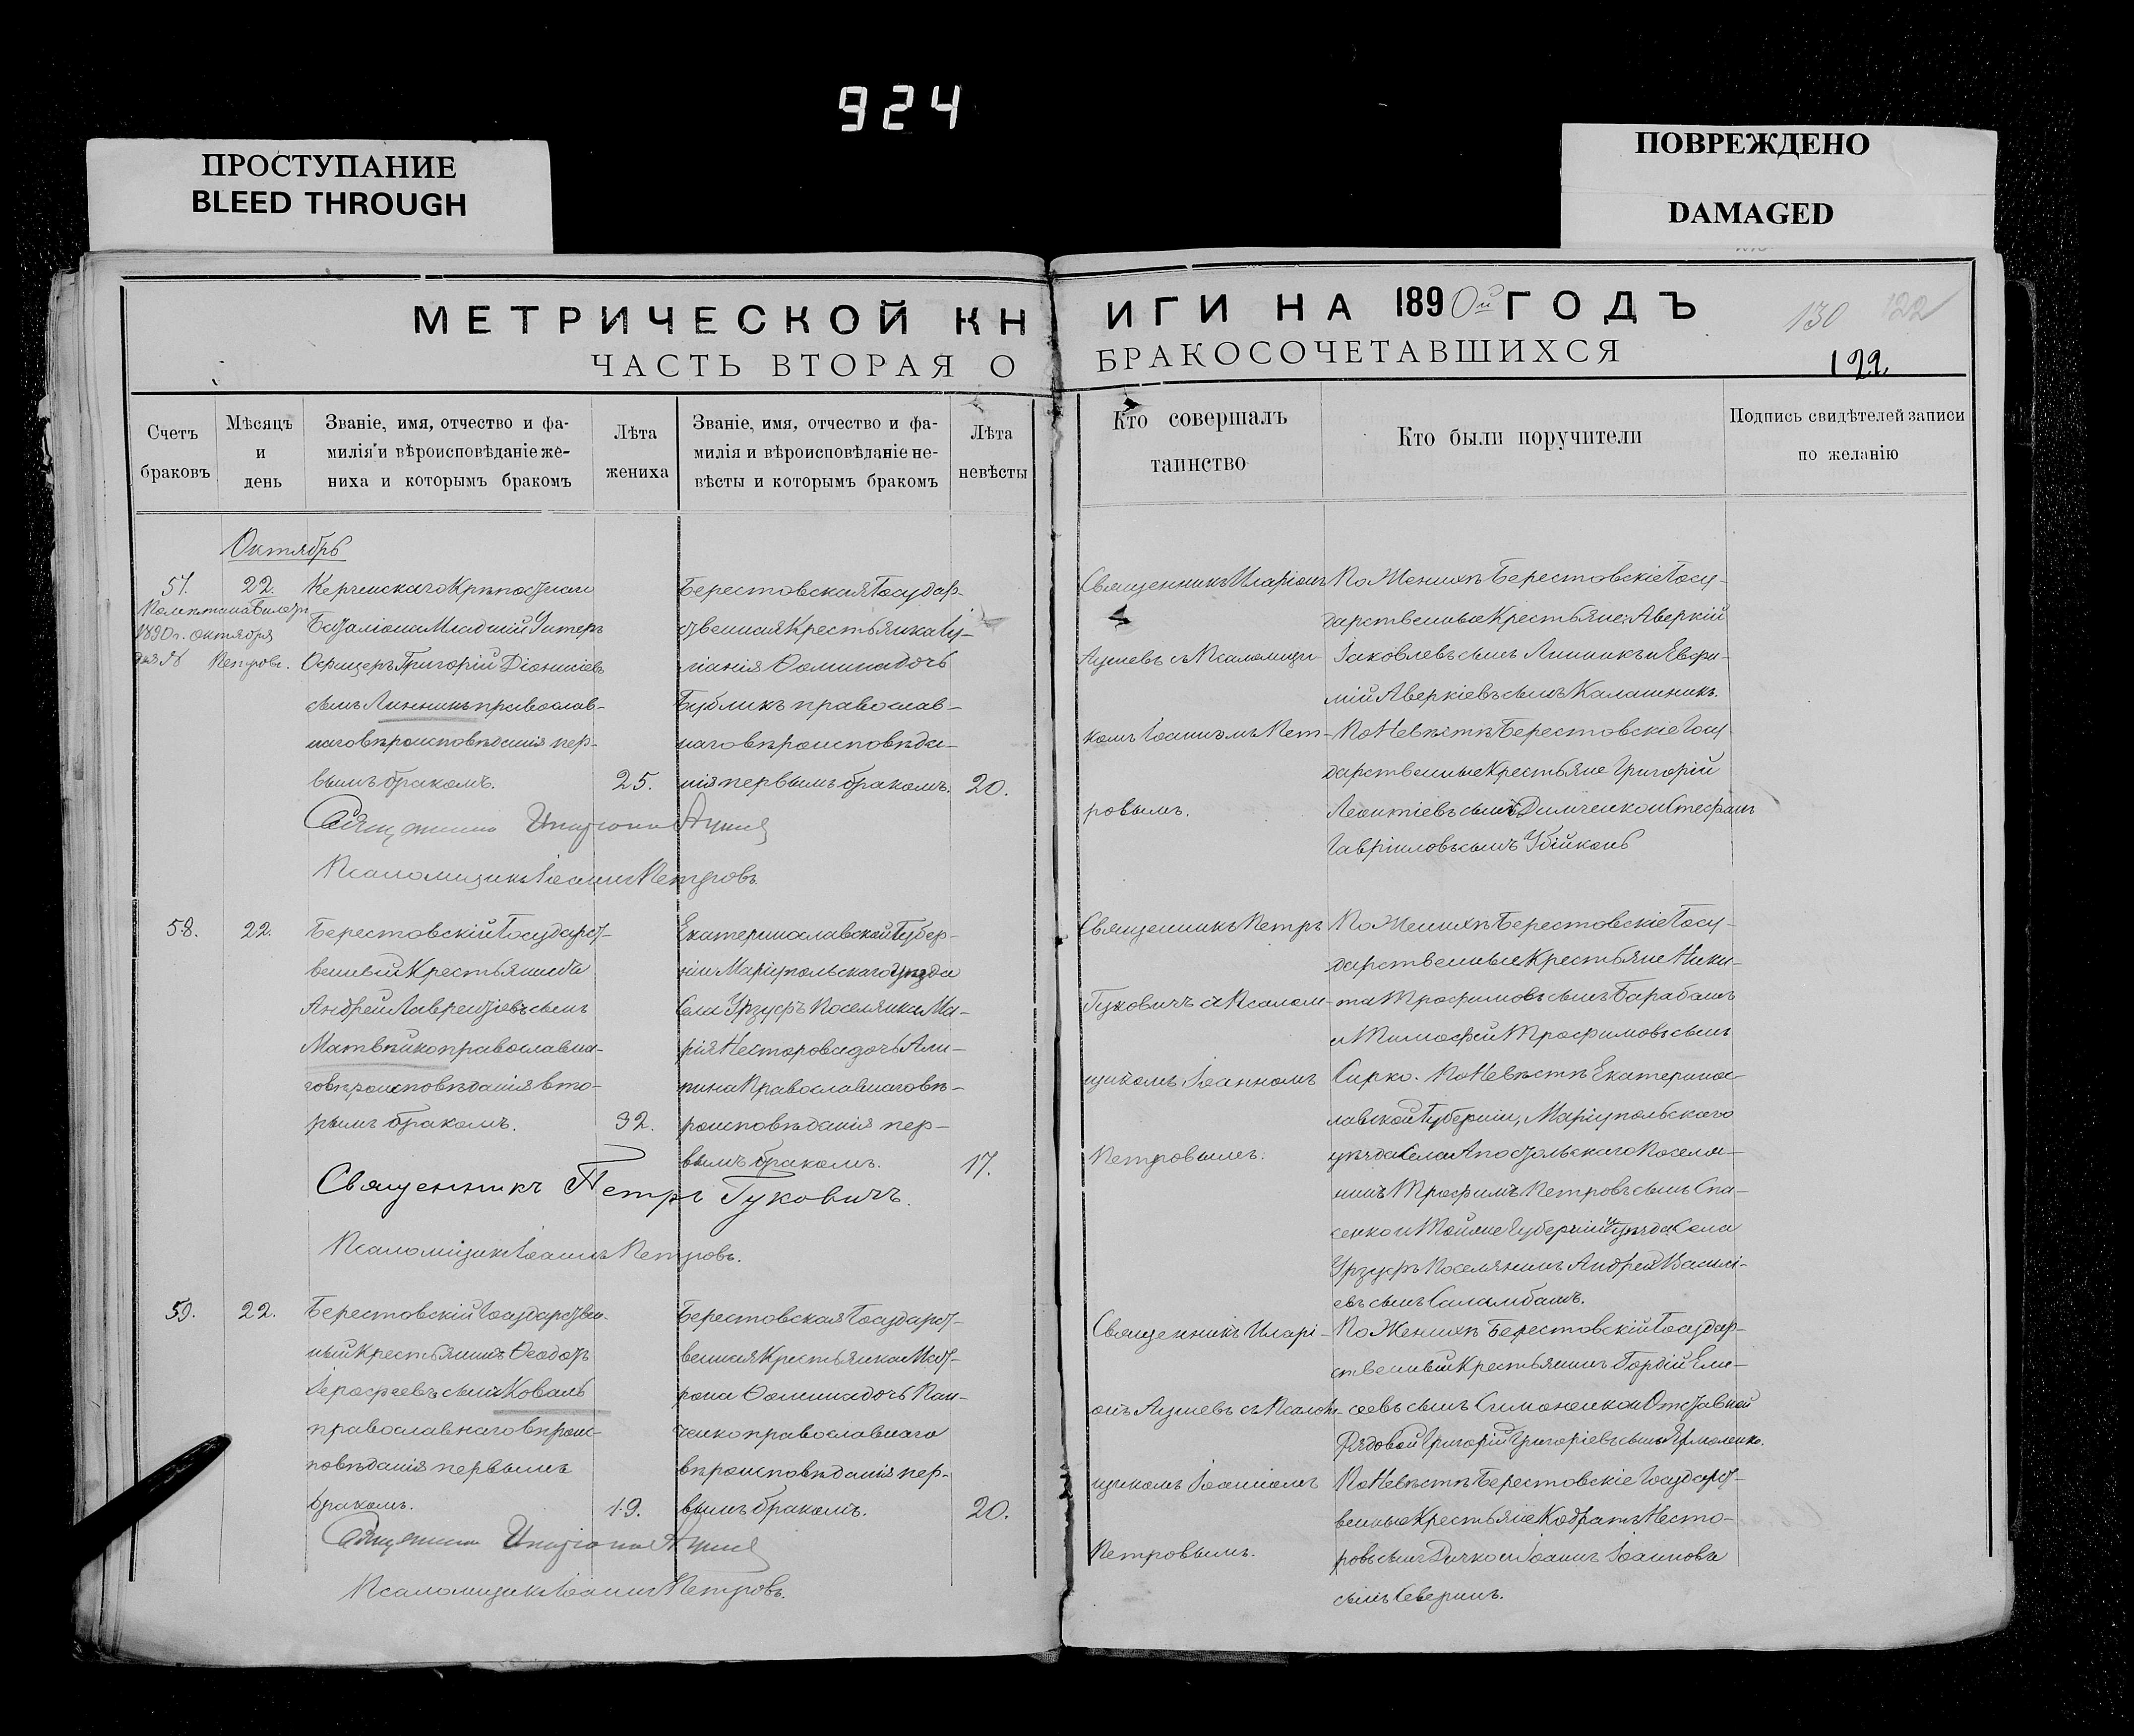 924
ПРОСТУПАНИЕ
BLEED THROUGH
ПОВРЕЖДЕНО
DAMAGED
МЕТРИЧЕСКОЙ КНИГИ НА 1890й ГОДЪ
130 122
ЧАСТЬ ВТОРАЯ О БРАКОСОЧЕТАВШИХСЯ
122.
Счетъ
браковъ
Мѣсяцъ
и
день
Званіе, имя, отчество и фа-
милія и вѣроисповѣданіе же-
ниха и которымъ бракомъ
Лѣта
жениха
Званіе, имя, отчество и фа-
милія и вѣроисповѣданіе не-
вѣсты и которымъ бракомъ
Лѣта
невѣсты
Кто совершалъ
таинство
Кто были поручители
Подпись свидѣтелей записи
по желанію
Октябрь
57.
1890 г. Октября
22.
Керченскаго Крѣпостнаго
Баталіона Младшій Унтеръ
Офицеръ Григорій Діонисіевъ
сынъ Линникъ православ-
наго вѣроисповѣданія пер-
вымъ бракомъ.
25.
Берестовская Государ-
ственная Крестьянка Іу-
ліанія Ѳомина дочь
Бубликъ православ-
наго вѣроисповѣда-
нія первымъ бракомъ.
20.
Священникъ Иларіонъ
Ацшевъ съ Псаломщи-
комъ Іоанномъ Пет-
ровымъ.
По Женихѣ Берестовскіе Госу-
дарственные Крестьяне: Аверкій
Іаковлевъ сынъ Линникъ и Евфи-
мій Аверкіевъ сынъ Калашникъ.
По Невѣстѣ Берестовскіе Госу-
дарственные Крестьяне Григорій
Леонтіевъ сынъ Димченко и Стефанъ
Гавріиловъ сынъ Убійконь
Псаломщикъ Іоаннъ Петровъ.
58.
22.
Берестовскій Государст-
венный Крестьянинъ
Андрей Лаврентіевъ сынъ
Матвѣйко православна-
го вѣроисповѣданія вто-
рымъ бракомъ.
32.
Екатеринославской Губер-
ніи Маріупольскаго уѣзда
Села Урзуфъ Поселянка Ма-
рія Несторова дочь Али-
пина Православнаго вѣ-
роисповѣданія пер-
вымъ бракомъ.
17.
Священникъ Петръ
Гуковичъ съ Псалом-
щикомъ Іоанномъ
Петровымъ.
По Женихѣ Берестовскіе Госу-
дарственные Крестьяне Ники-
та Трофимовъ сынъ Барабашъ
и Тимофей Трофимовъ сынъ
Сирко. По Невѣстѣ Екатеринос-
лавской Губерніи, Маріупольскаго
уѣзда Села Апостольскаго Поселя-
нинъ Трофимъ Петровъ сынъ Спа-
сенко и Той же Губерніи и уѣзда Села
Урзуфъ Поселянинъ Андрей Василі-
евъ сынъ Саламбашъ.
Священникъ Петръ Гуковичъ.
Псаломщикъ Іоаннъ Петровъ.
59.
22.
Берестовскій Государствен-
ный Крестьянинъ Ѳеодотъ
Іерофеевъ сынъ Коваль
православнаго вѣроис-
повѣданія первымъ
бракомъ.
19.
Берестовская Государст-
венная Крестьянка Мат-
рона Ѳомина дочь Пан-
ченко православнаго
вѣроисповѣданія пер-
вымъ бракомъ.
20.
Священникъ Иларі-
онъ Ацшевъ съ Псалом-
щикомъ Іоанномъ
Петровымъ.
По Женихѣ Берестовскій Государ-
ственный Крестьянинъ Гордій Ели-
сеевъ сынъ Симоненко и Отставной
Рядовой Григорій Григоріевъ сынъ Ярмоленко.
По Невѣстѣ Берестовскіе Государст-
венные Крестьяне Кодратъ Несто-
ровъ сынъ Дичко и Іоаннъ Іоанновъ
сынъ Северинъ.
Псаломщикъ Іоаннъ Петровъ.